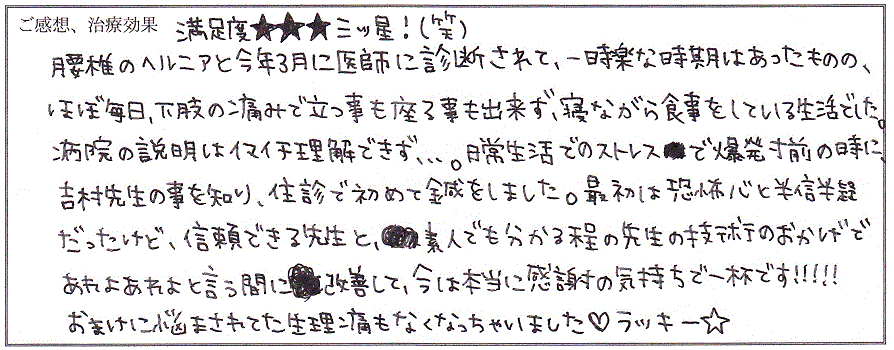 ご感想、治療効果 満足度★★★三ッ星！(笑)
腰椎のヘルニアと今年3月に医師に診断されて、一時楽な時期はあったものの、
ほぼ毎日、下肢の痛みで立つ事も座る事も出来ず、寝ながら食事をしている生活でした。
病院の説明はイマイチ理解できず、、、。日常生活でのストレスで爆発寸前の時に
吉村先生の事を知り、往診で初めて鍼灸をしました。最初は恐怖心と半信半疑
だったけど、信頼できる先生と、素人でも分かる程の先生の技術のおかげで
あれよあれよと言う間に改善して、今は本当に感謝の気持ちで一杯です!!!!!
おまけに悩まされてた生理痛もなくなっちゃいました♡ ラッキー☆